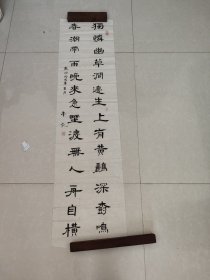 獨憐幽草澗邊生上有黃鸝深樹鳴
春潮帶雨晚來急野渡無人舟自橫